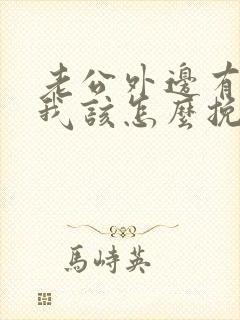 老公外邊有
我該怎麼挽
馬峙英